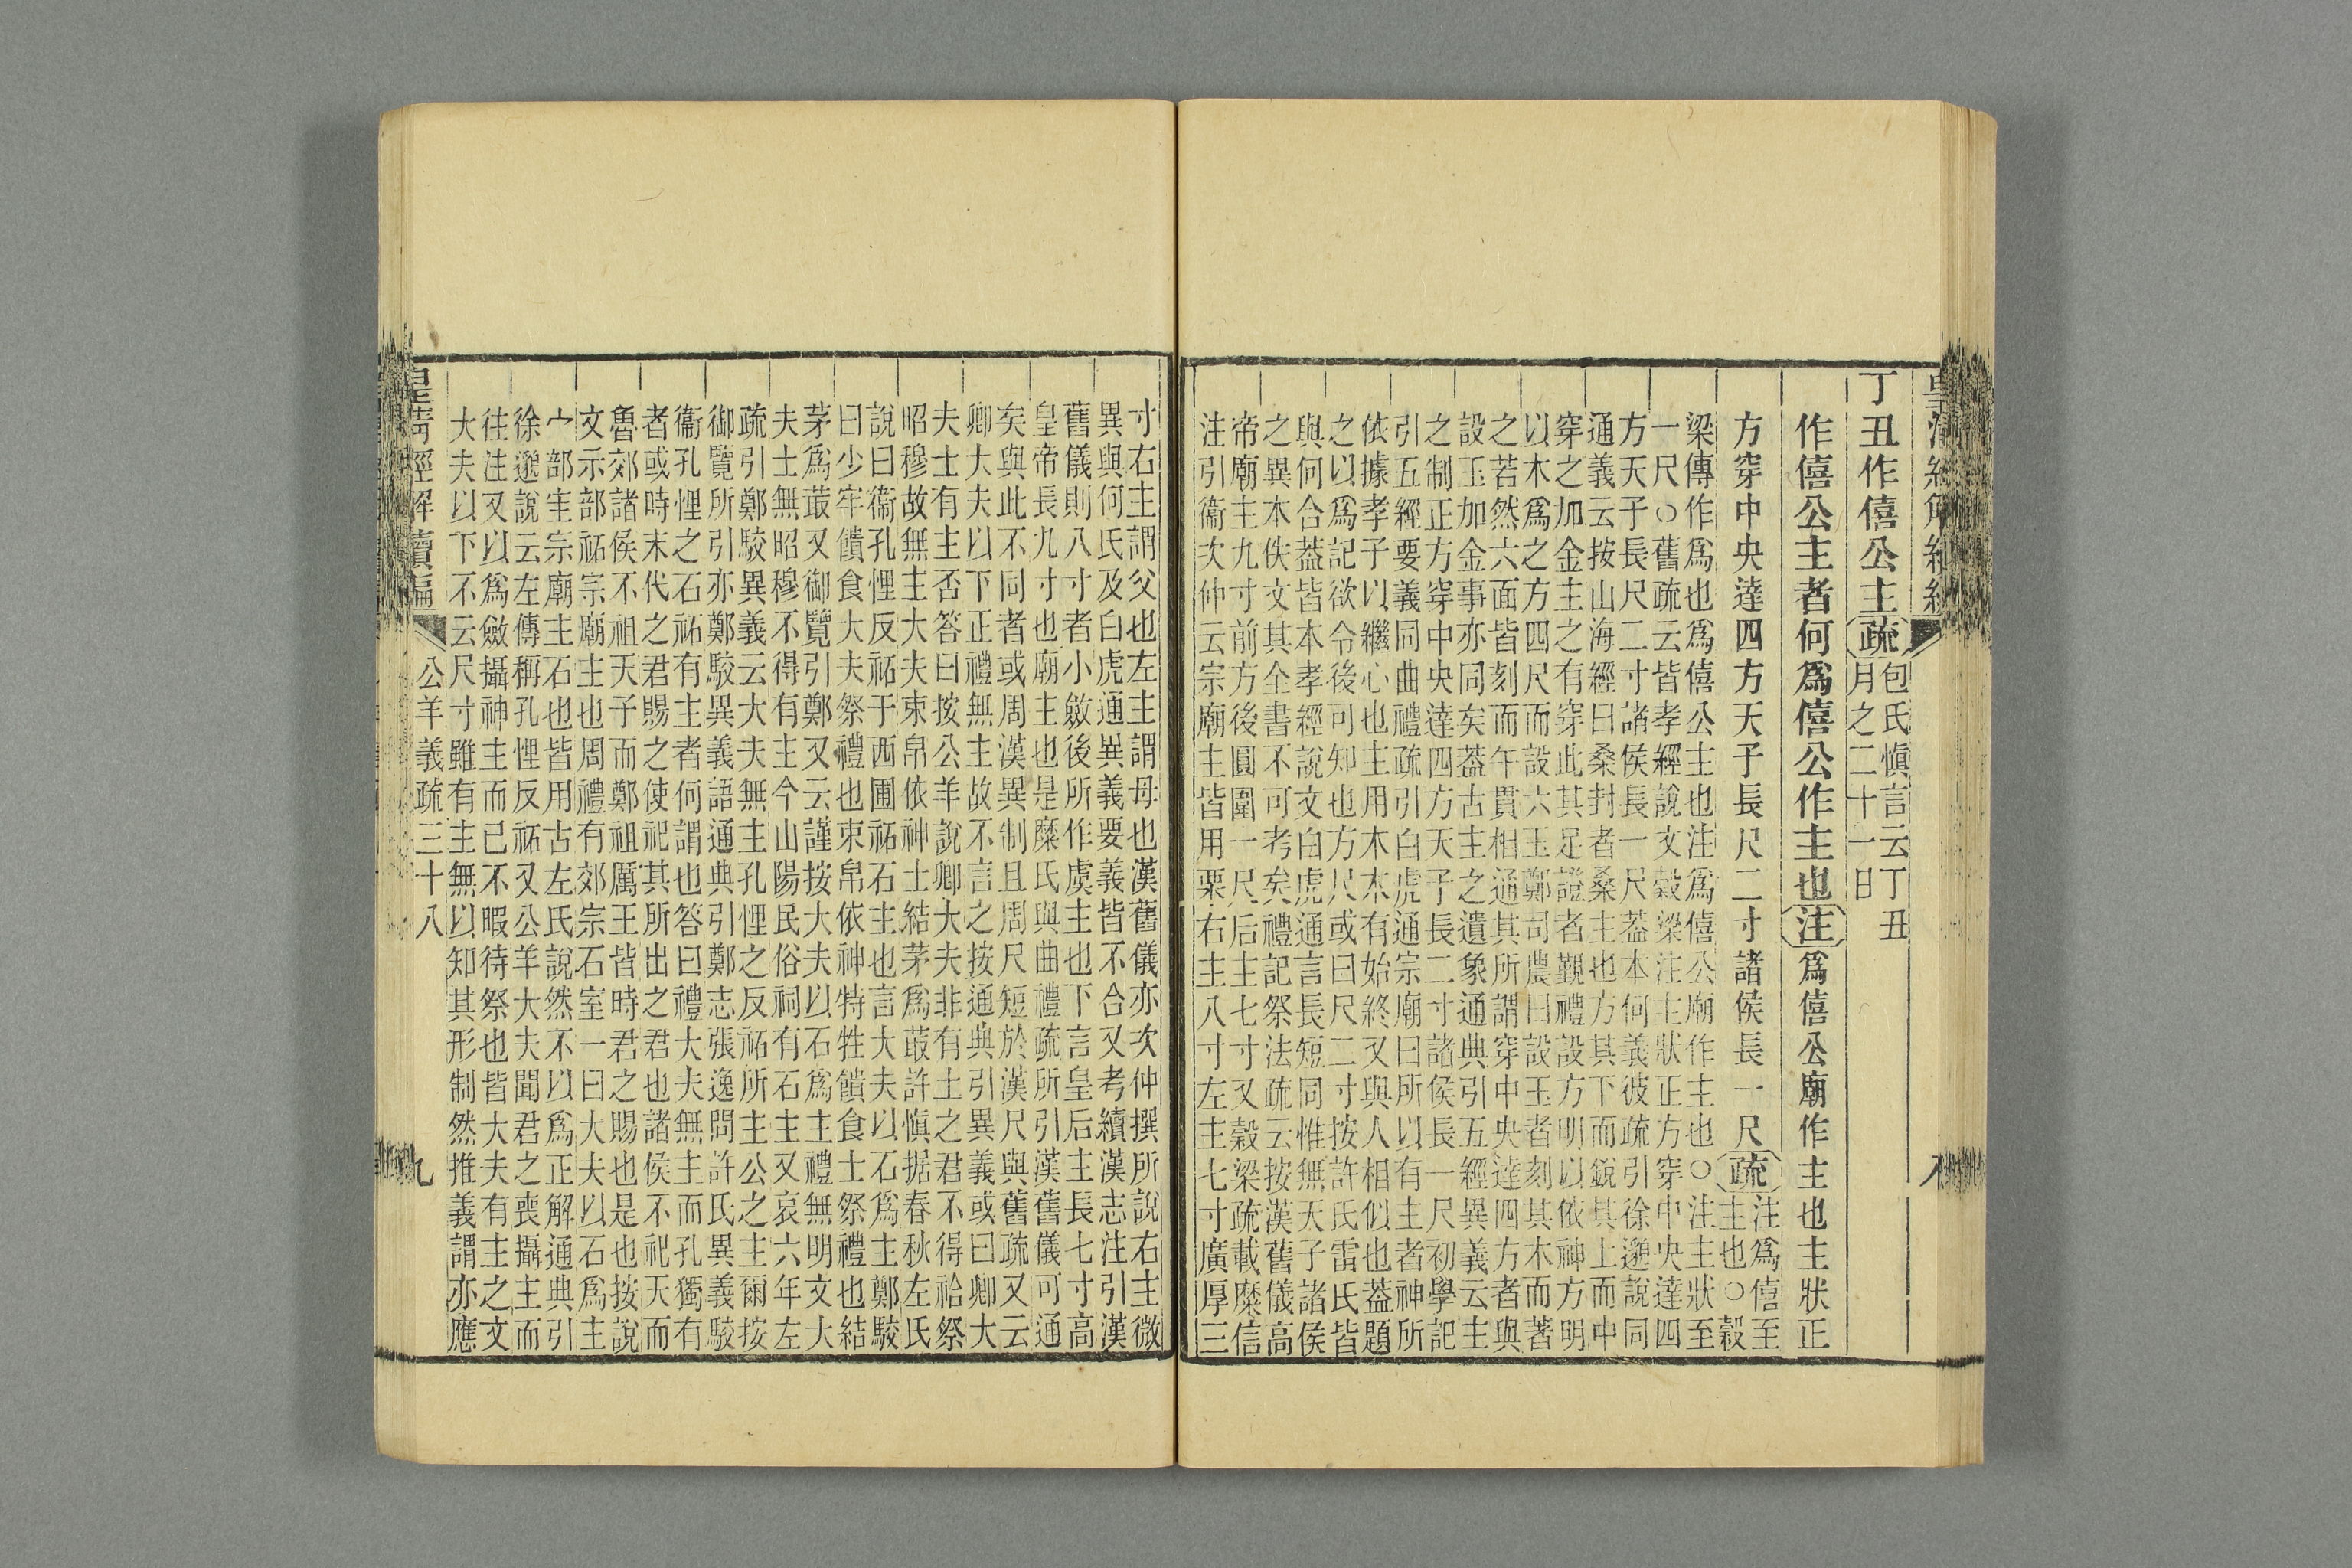 皇清經解續編
八
丁丑作僖公主疏包氏愼言云丁丑
月之二十一日
作僖公主者何爲僖公作主也注爲僖公廟作主也主狀正
方穿中央達四方天子長尺二寸諸侯長一尺疏注爲僖至
主也○穀
梁傳作爲也爲僖公主也注爲僖公廟作主也○注主狀至
一尺○舊疏云皆孝經說文穀梁注主狀正方穿中央達四
方天子長尺二寸諸侯長一尺葢本何義彼疏引徐邈說同
通義云按山海經曰桑封者桑主也方其下而銳其上而中
穿之加金主之有穿此其足證者覲禮設方明以依神方明
以木爲之方四尺而設六玉鄭司農曰設玉者刻其木而著
之若然六面皆刻而午貫相通其所謂穿中央達四方者與
設玉加金事亦同矣葢古主之遺象通典引五經異義云主
之制正方穿中央達四方天子長二寸諸侯長一尺初學記
引五經要義同曲禮疏引白虎通宗廟曰所以有主者神所
依據孝子以繼心也主用木木有始終又與人相似也葢題
之以爲記欲令後可知也方尺或曰尺二寸按許氏雷氏皆
與何合葢皆本孝經說文白虎通言長短同惟無天子諸侯
之異本佚文其全書不可考矣禮記祭法疏云按漢舊儀高
帝廟主九寸前方後圓圍一尺后主七寸又穀梁疏載糜信
注引衞次仲云宗廟主皆用栗右主八寸左主七寸廣厚三
寸右主謂父也左主謂母也漢舊儀亦次仲撰所說右主微
異與何氏及白虎通異義要義皆不合又考續漢志注引漢
舊儀則八寸者小斂後所作虞主也下言皇后主長七寸高
皇帝長九寸也廟主也是糜氏與曲禮疏所引漢舊儀可通
矣與此不同者或周漢異制且周尺短於漢尺與舊疏又云
卿大夫以下正禮無主故不言之按通典引異義或曰卿大
夫士有主否答曰按公羊說卿大夫非有土之君不得祫祭
昭穆故無主大夫束帛依神士結茅爲菆許愼据春秋左氏
說曰衞孔悝反祏于西圃祏石主也言大夫以石爲主鄭駮
曰少牢饋食大夫祭禮也束帛依神特牲饋食士祭禮也結
茅爲菆又御覽引鄭又云謹按大夫以石爲主禮無明文大
夫士無昭穆不得有主今山陽民俗祠有石主又哀六年左
疏引鄭駮異義云大夫無主孔悝之反祏所主公之主爾按
御覽所引亦鄭駮異義語通典引鄭志張逸問許氏異義駮
衞孔悝之石祏有主者何謂也答曰禮大夫無主而孔獨有
者或時末代之君賜之使祀其所出之君也諸侯不祀天而
魯郊諸侯不祖天子而鄭祖厲王皆時君之賜也是也按說
文示部祏宗廟主也周禮有郊宗石室一曰大夫以石爲主
宀部宔宗廟主石也皆用古左氏說然不以爲正解通典引
徐邈說云左傳稱孔悝反祏又公羊大夫聞君之喪攝主而
往注又以爲斂攝神主而已不暇待祭也皆大夫有主之文
大夫以下不云尺寸雖有主無以知其形制然推義謂亦應
皇清經解續編
公羊義疏三十八
九